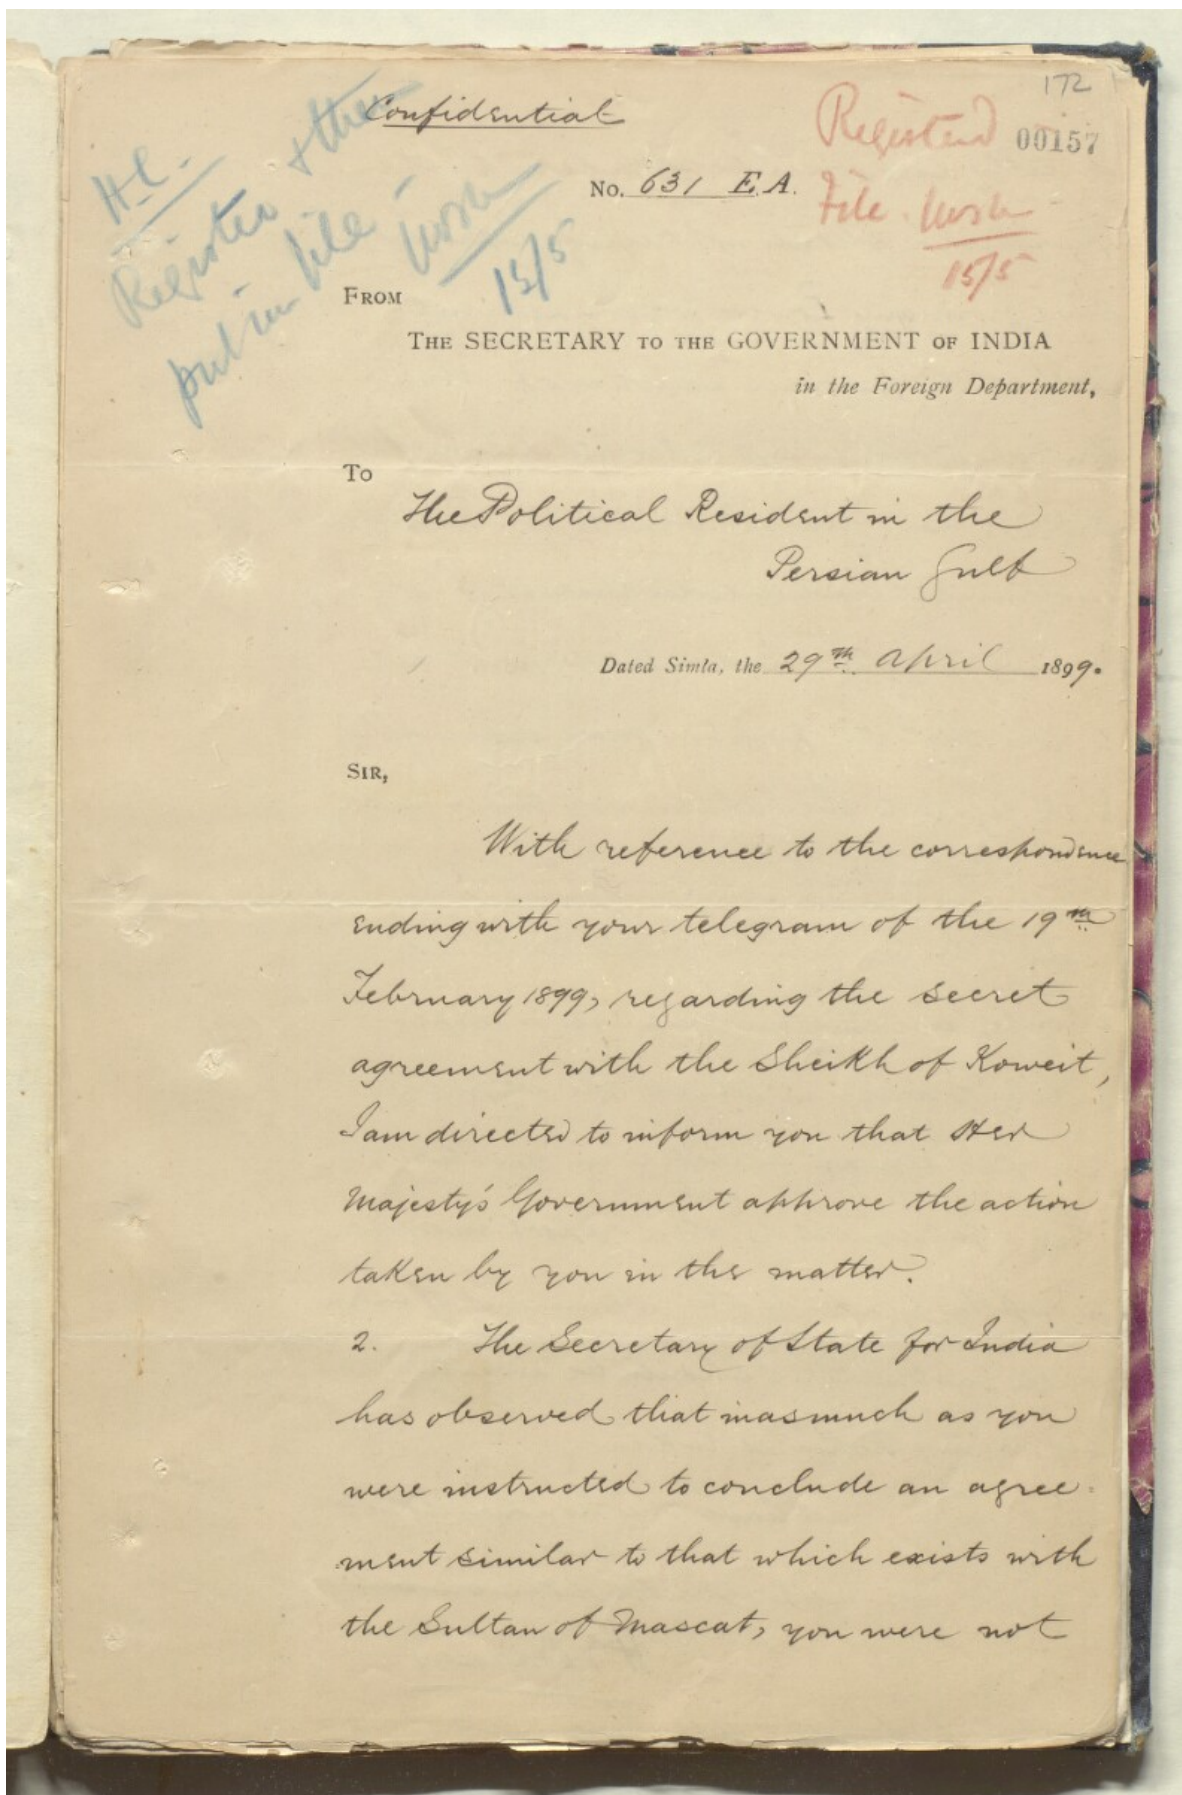 172
Confidential
Registered 00157
H.C.
Register & then
put in file
15/5
File
15/5
No. 631 E.A.
FROM
THE SECRETARY TO THE GOVERNMENT OF INDIA
in the Foreign Department,
To
The Political Resident in the
Persian Gulf
Dated Simla, the 29th April 1899.
SIR,
With reference to the correspondence
ending with your telegram of the 19th
February 1899, regarding the secret
agreement with the Sheikh of Koweit,
I am directed to inform you that Her
Majesty's Government approve the action
taken by you in the matter.
2. The Secretary of State for India
has observed that inasmuch as you
were instructed to conclude an agree-
ment similar to that which exists with
the Sultan of Mascat, you were not